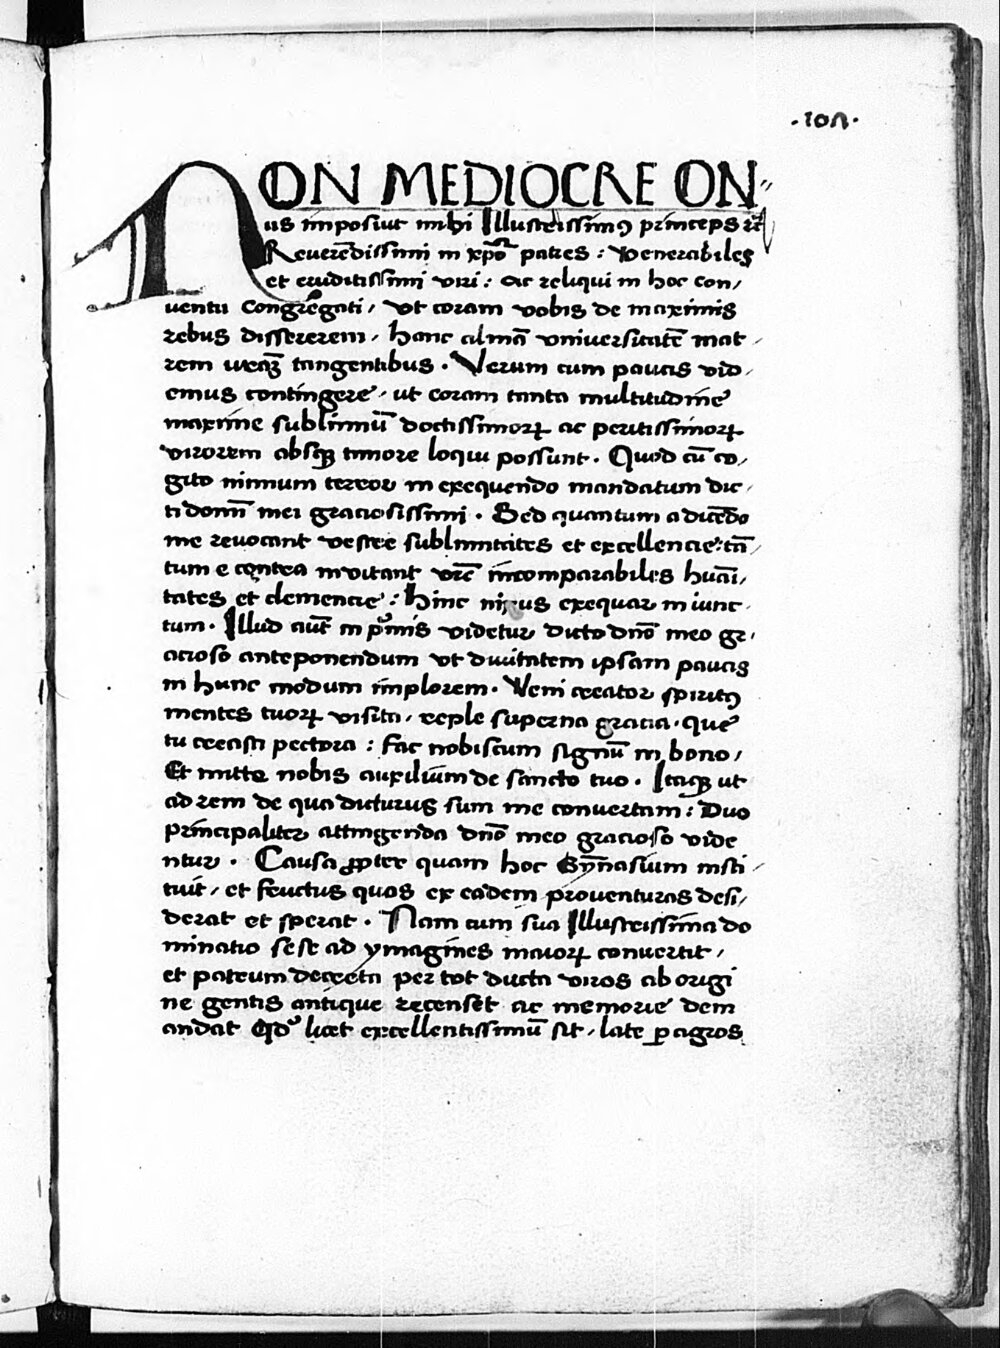 ·101·
NON MEDIOCRE ON⸗
us imposuit mihi Illustrissimꝯ princeps ⁊c̄
Reuerēdissimi in xp̄o patres : Venerabiles
et eruditissimi viri : ac reliqui in hoc con/
uentu Congregati / vt coram vobis de maximis
rebus dissererem / hanc almā vniuersitatē mat /
rem vtrāqꝫ tangentibus . Verum cum paucis vid /
emus contingere / ut coram tanta multitudine
maxime sublimiū doctissimoꝝ ac peritissimoꝝ
virorem absqꝫ timore loqui possunt . Quod cū co /
gito nimium terreor in exequendo mandatum dic /
ti domī mei graciosissimi . Sed quantum a dicēdo
me reuocant vestre sublimitates et excellencie : tā /
tum e contra inuitant vr̄e incomparabiles huāi /
tates et clemencie : Hinc nixus exequar iniunc /
tum . Illud aūt in p̄mis videtur dicto dn̄o meo gr /
acioso anteponendum vt diuitatem ipsam paucis
in hunc modum implorem . Veni creator spiritꝯ
mentes tuoꝝ visita / reple superna gracia . que
tu creasti pectora : fac nobiscum signū in bono /
Et mitte nobis auxilium de sancto tuo . Itaqꝫ ut
ad rem de qua dicturus sum me conuertam : Duo
principaliter attingenda dn̄o meo gracioso vide
ntur . Causa ꝓpter quam hoc Gȳnasium insti /
tuit / et fructus quos ex eadem prouenturos desi /
derat et sperat . Nam cum sua Illustrissima do
minatio sese ad ymagines maioꝝ conuertit /
et patrum decreta per tot ducta viros ab origi
ne gentis antique recenset ac memorie dem
andat Qd̄ licet excellentissimū sit / late ꝑ agros